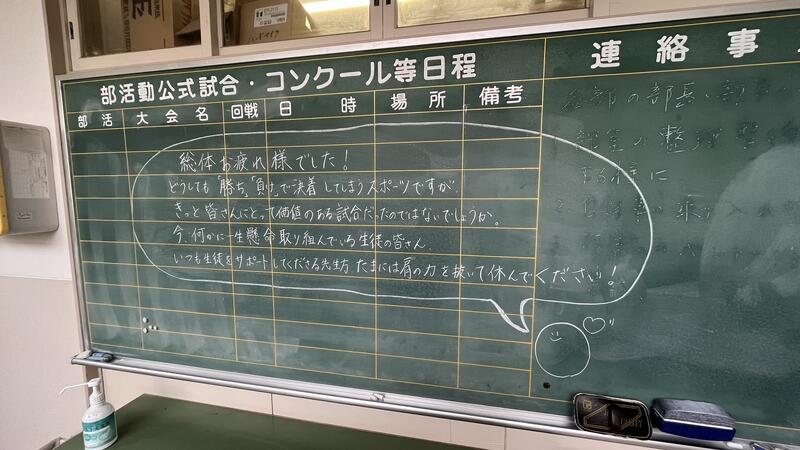 部活動公式試合・コンクール等日程
部活 大会名 回戦 日時 場所 備考
総体お疲れ様でした！
どうしても「勝ち」「負け」で決着してしまうスポーツですが、
きっと皆さんにとって価値のある試合だったのではないでしょうか。
今、何かに一生懸命取り組んでいる生徒の皆さん、
いつも生徒をサポートしてくださる先生方、たまには肩の力を抜いて休んでください！
連絡事
各部の部長、部
部室の整理